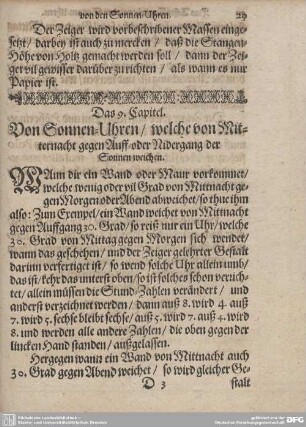 von den Sonnen-Uhren. 29
Der Zeiger wird vorbeschribener Massen einge-
setzt/ darbey ist auch zu mercken / daß die Stangen-
Höhe von Holtz gemacht werden soll / dann der Zei-
ger vil gewisser darüber zu richten / als wann es nur
Papier ist.
Das 9. Capitel.
Von Sonnen-Uhren / welche von Mit-
ternacht gegen Auff- oder Nidergang der
Sonnen weichen.
WAnn dir ein Wand oder Maur vorkommet/
welche wenig oder vil Grad von Mittnacht ge-
gen Morgen oder Abend abweichet/ so thue ihm
also: Zum Exempel/ ein Wand weichet von Mittnacht
gegen Auffgang 30. Grad/ so reiß nur ein Uhr/ welche
30. Grad von Mittag gegen Morgen sich wendet/
wann das geschehen/ und der Zeiger gelehrter Gestalt
darinn verfertiget ist/ so wend solche Uhr allein umb/
das ist/ kehr das unterst oben/ so ist solches schon verrich-
tet/ allein müssen die Stund-Zahlen verändert/ und
anderst verzeichnet werden/ dann auß 8. wird 4. auß
7. wird 5. sechse bleibt sechse/ auß 5. wird 7. auß 4. wird
8. und werden alle andere Zahlen/ die oben gegen der
lincken Hand standen/ außgelassen.
Hergegen wann ein Wand von Mittnacht auch
30. Grad gegen Abend weichet/ so wird gleicher Ge-
D 3 stalt